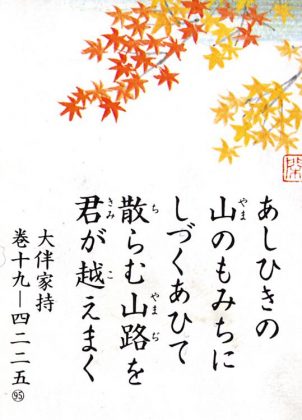 あしひきの
山のもみちに
しづくあひて
散らむ山路を
君が越えまく
大伴家持
巻十九―四二二五
95